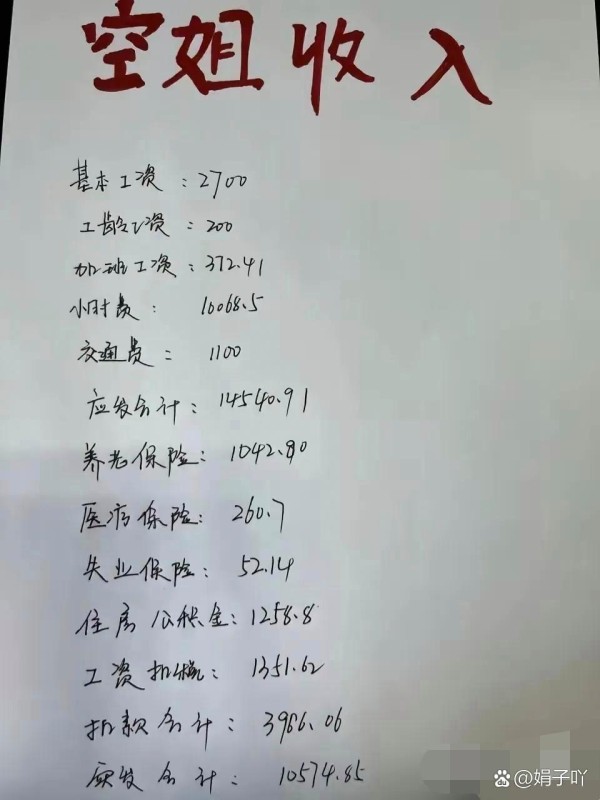 空姐收入
基本工资：2700
工龄工资：200
加班工资：372.41
小时费：10068.5
交通费：1100
应发合计：14540.91
养老保险：1042.80
医疗保险：260.7
失业保险：52.14
住房公积金：1258.8
工资扣税：1351.62
扣款合计：3966.06
实发合计：10574.85
@娟子吖